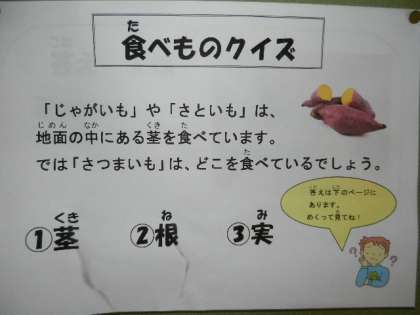 食べものクイズ
「じゃがいも」や「さといも」は、
地面の中にある茎を食べています。
では「さつまいも」は、どこを食べているでしょう。
答えは下のページに
あります。
めくって見てね！
①茎 ②根 ③実